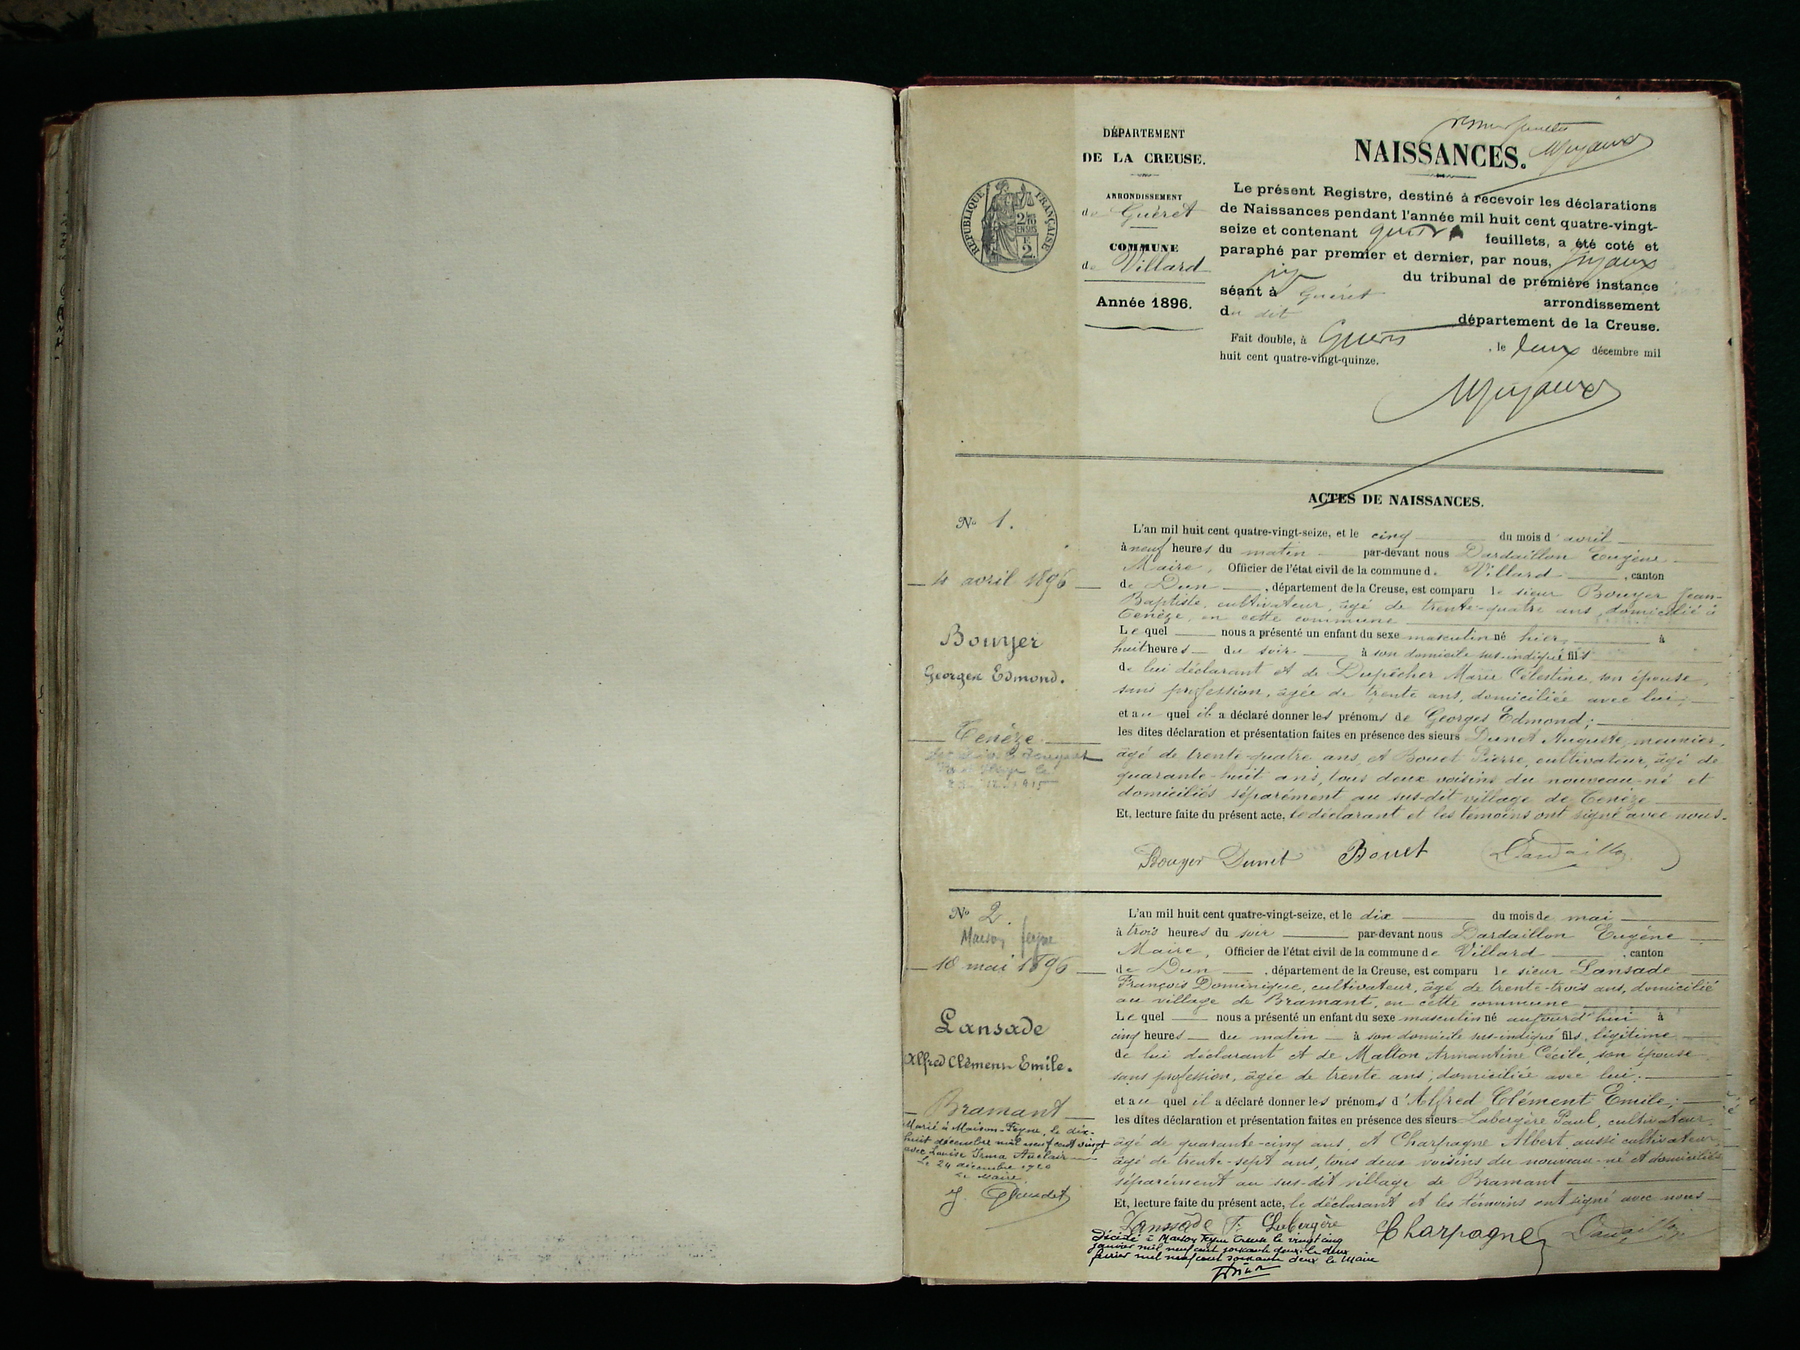 DÉPARTEMENT
DE LA CREUSE.
ARRONDISSEMENT
de Guéret
COMMUNE
de Villard
Année 1896.
RÉPUBLIQUE FRANÇAISE
NAISSANCES.
Le présent Registre, destiné à recevoir les déclarations
de Naissances pendant l'année mil huit cent quatre-vingt-
seize et contenant feuillets, a été coté et
paraphé par premier et dernier, par nous,
du tribunal de première instance
séant à Guéret arrondissement
du dit département de la Creuse.
Fait double, à Guéret, le deux décembre mil
huit cent quatre-vingt-quinze.
ACTES DE NAISSANCES.
No 1.
4 avril 1896
Bouyer
Georges Edmond.
Tenèze
L'an mil huit cent quatre-vingt-seize, et le cinq du mois d'avril
à neuf heures du matin par-devant nous Dardaillon Eugène
Maire, Officier de l'état civil de la commune d. Villard, canton
de Dun, département de la Creuse, est comparu le sieur Bouyer Jean-
Baptiste, cultivateur, âgé de trente-quatre ans, domicilié à
Tenèze, en cette commune
Lequel nous a présenté un enfant du sexe masculin né hier, à
huit heures du soir à son domicile sus-indiqué fils
de lui déclarant et de Dupêcher Marie Célestine, son épouse,
sans profession, âgée de trente ans, domiciliée avec lui;
et au quel il a déclaré donner les prénoms de Georges Edmond;
les dites déclaration et présentation faites en présence des sieurs Dunet Auguste, meunier,
âgé de trente-quatre ans, et Bouet Pierre, cultivateur, âgé de
quarante-huit ans, tous deux voisins du nouveau-né et
domiciliés séparément au sus-dit village de Tenèze
Et, lecture faite du présent acte, le déclarant et les témoins ont signé avec nous.
Bouyer Dunet Bouet Dardaillon
No 2.
Maison feyne
10 mai 1896
Lansade
Alfred Clément Emile.
Bramant
Marié à Maison-Feyne, le dix-
huit décembre mil neuf cent vingt
avec Louise Irma Auclair
Le 24 décembre 1920
Le Maire
L'an mil huit cent quatre-vingt-seize, et le dix du mois de mai
à trois heures du soir par-devant nous Dardaillon Eugène
Maire, Officier de l'état civil de la commune de Villard, canton
de Dun, département de la Creuse, est comparu le sieur Lansade
François Dominique, cultivateur, âgé de trente-trois ans, domicilié
au village de Bramant, en cette commune
Lequel nous a présenté un enfant du sexe masculin né aujourd'hui à
cinq heures du matin à son domicile sus-indiqué fils légitime
de lui déclarant et de Malton Armantine Cécile, son épouse
sans profession, âgée de trente ans, domiciliée avec lui;
et au quel il a déclaré donner les prénoms d'Alfred Clément Emile;
les dites déclaration et présentation faites en présence des sieurs Labergère Paul, cultivateur,
âgé de quarante-cinq ans, et Charpagne Albert, aussi cultivateur,
âgé de trente-sept ans, tous deux voisins du nouveau-né et domiciliés
séparément au sus-dit village de Bramant
Et, lecture faite du présent acte, le déclarant et les témoins ont signé avec nous
Lansade F. Labergère Charpagne Dardaillon
Décédé à Maison Feyne Creuse le vingt cinq
janvier mil neuf cent soixante deux. Le deux
février mil neuf cent soixante deux le Maire